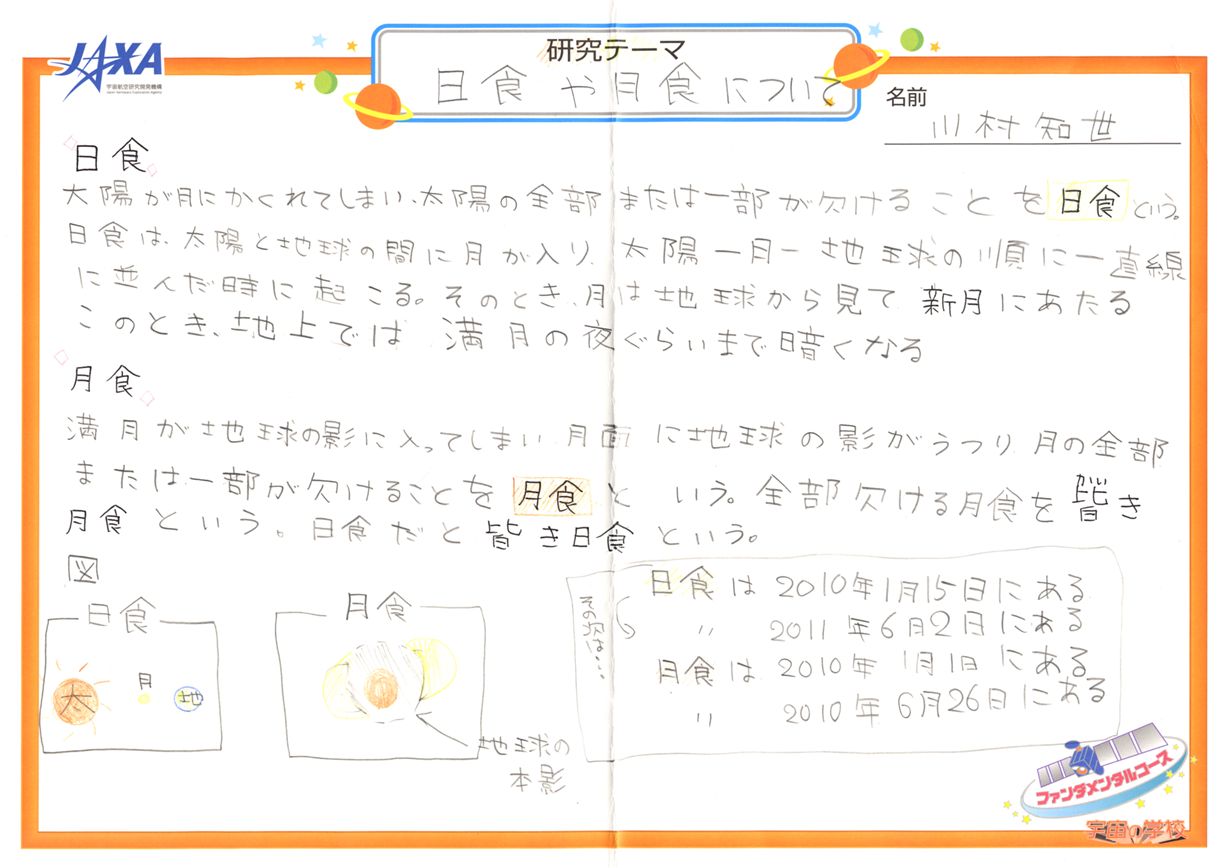 JAXA
宇宙航空研究開発機構
Japan Aerospace Exploration Agency
研究テーマ
日食や月食について
名前
川村知世
日食
太陽が月にかくれてしまい、太陽の全部または一部が欠けることを日食という。
日食は、太陽と地球の間に月が入り、太陽ー月ー地球の順に一直線
に並んだ時に起こる。そのとき、月は地球から見て新月にあたる
このとき、地上では満月の夜ぐらいまで暗くなる
月食
満月が地球の影に入ってしまい、月面に地球の影がうつり、月の全部
または一部が欠けることを月食という。全部欠ける月食を皆き
月食という。日食だと皆き日食という。
図
日食
太
月
地
月食
地球の
本影
その次は…
日食は 2010年1月15日にある
〃 2011年6月2日にある
月食は 2010年1月1日にある
〃 2010年6月26日にある
ファンダメンタルコース
宇宙の学校